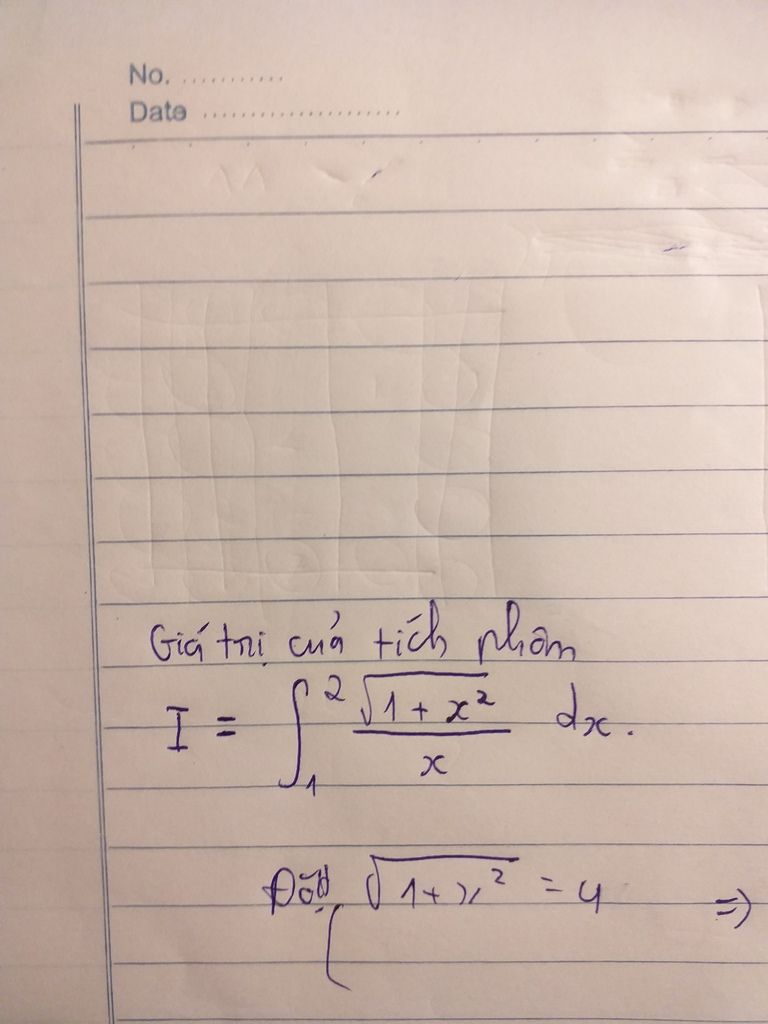 No. ...........
Date ......................
Giá trị của tích phân
I = ∫₁² √(1 + x²) / x dx.
Đặt √(1+x²) = u =>